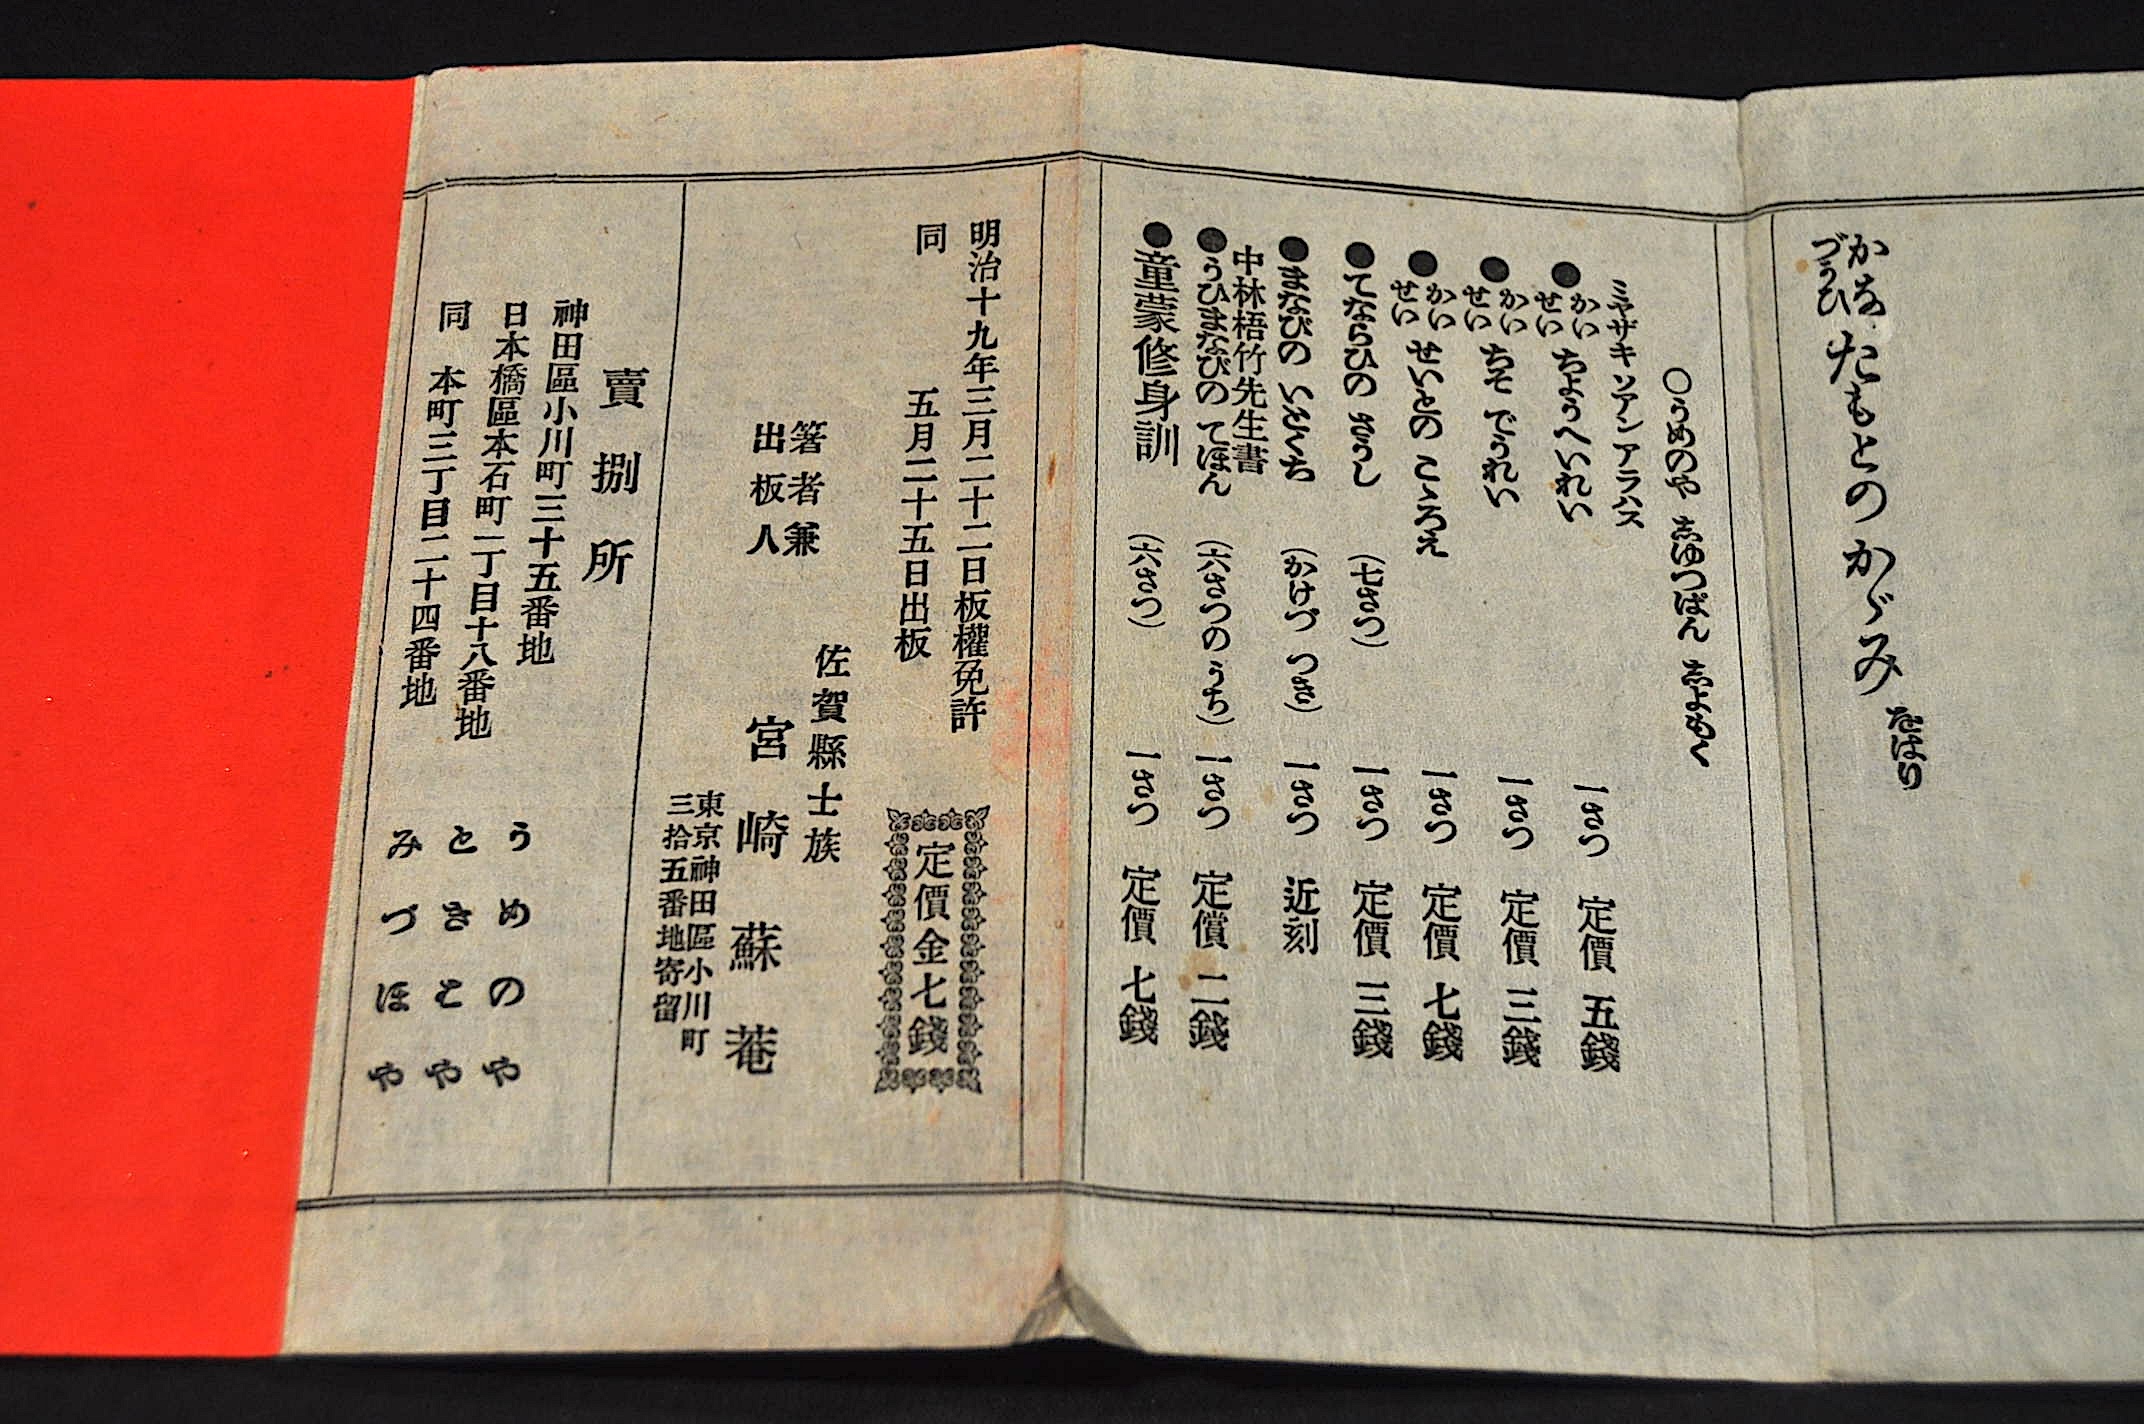 かな
づうひ
たもとの かゞみ をはり
○うめのや 志ゆつぱん 志よもく
ミヤザキ ソアン アラハス
●かい
せい ちようへいれい 一さつ 定價 五錢
●かい
せい ちそ でうれい 一さつ 定價 三錢
●かい
せい せいとの こゝろえ 一さつ 定價 七錢
●てならひの さうし (七さつ) 一さつ 定價 三錢
●まなびの いとぐち (かけづ つき) 一さつ 近刻
中林梧竹先生書
●うひまなびの てほん (六さつの うち) 一さつ 定償 二錢
●童蒙修身訓 (六さつ) 一さつ 定價 七錢
明治十九年三月二十二日板權免許
同 五月二十五日出板
定價金七錢
佐賀縣士族
箸者兼
出板人
宮崎蘇菴
東京神田區小川町
三拾五番地寄留
賣捌所
神田區小川町三十五番地 うめのや
日本橋區本石町一丁目十八番地 ときとや
同 本町三丁目二十四番地 みづほや